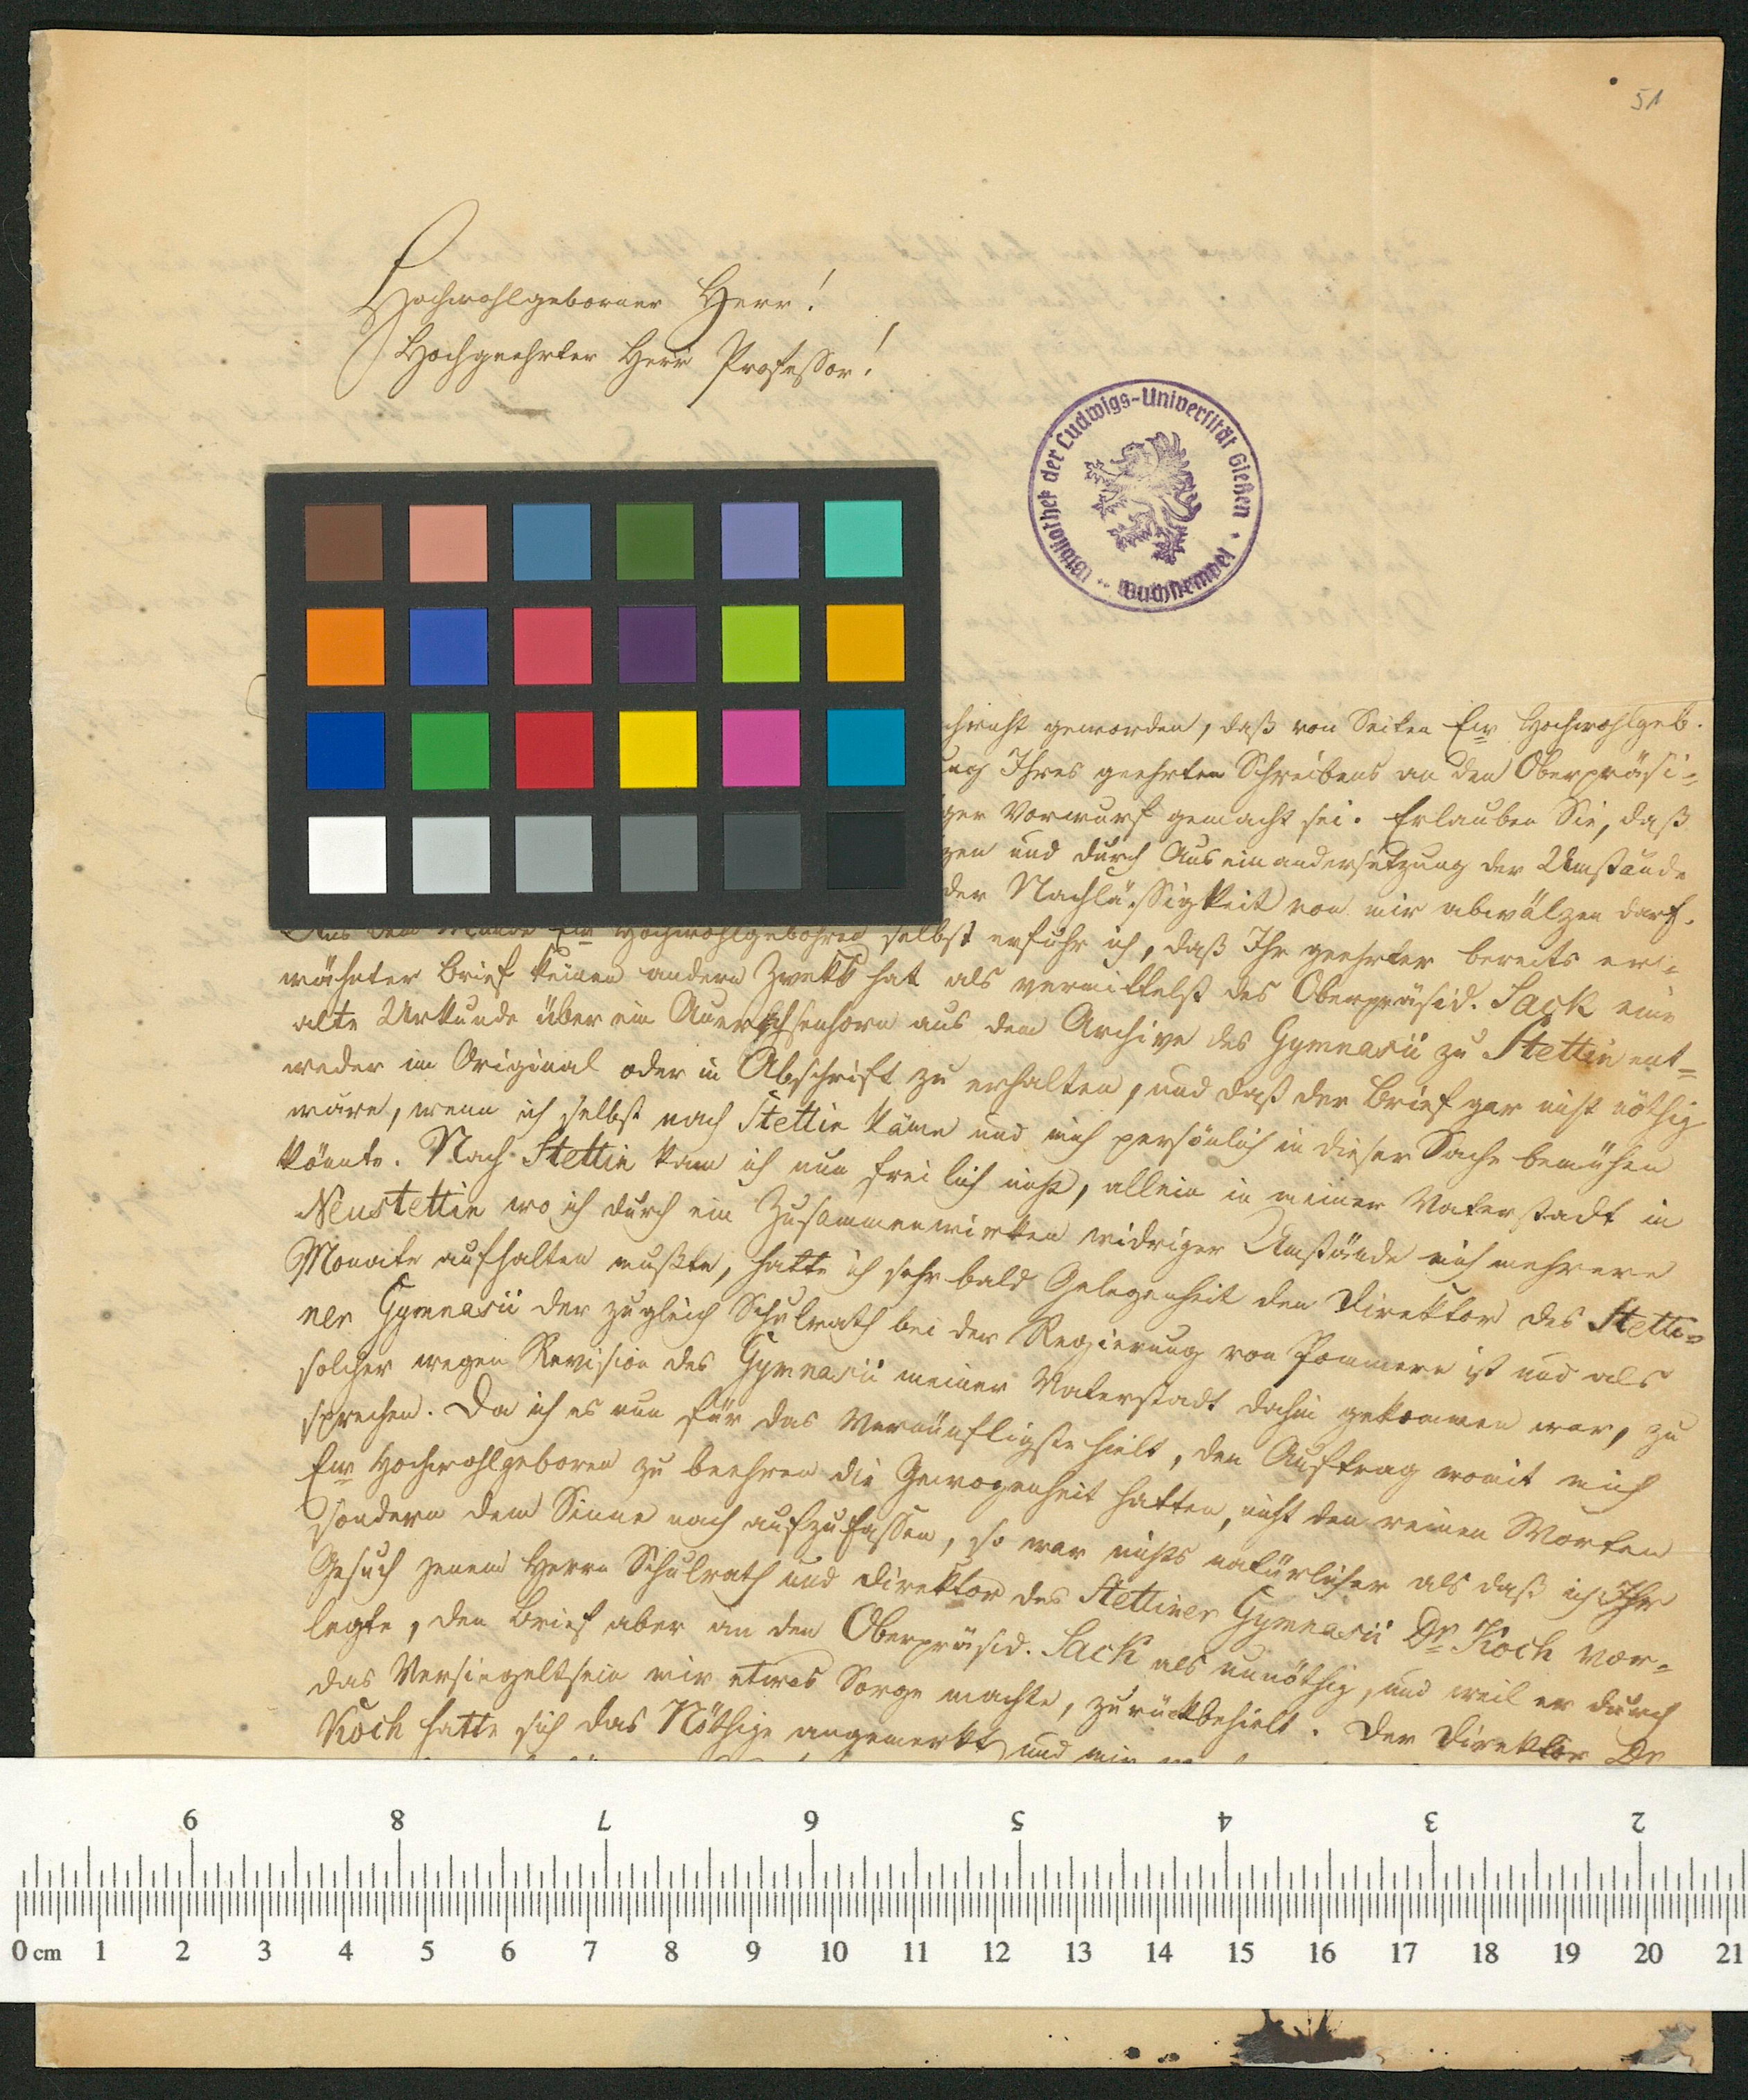 51
Hochwohlgeborner Herr!
Hochgeehrter Herr Professor!
Bibliothek der Ludwigs-Universität Gießen
chricht geworden, daß von Seiten Ew Hochwohlgeb.
ung Ihres geehrten Schreibens an den Oberpräsi-
ger Vorwurf gemacht sei. Erlauben Sie, daß
gen und durch Auseinandersetzung der Umstände
der Nachlässigkeit von mir abwälzen darf.
Aus dem Munde Ew Hochwohlgebohren selbst erfuhr ich, daß Ihr geehrter bereits er-
wähnter Brief keinen andern Zwekk hat als vermittelst des Oberpräsid. Sack eine
alte Urkunde über ein Auerochsenhorn aus dem Archive des Gymnasii zu Stettin ent-
weder im Original oder in Abschrift zu erhalten, und daß der Brief gar nicht nöthig
wäre, wenn ich selbst nach Stettin käme und mich persönlich in dieser Sache bemühen
könnte. Nach Stettin kam ich nun freilich nicht, allein in meiner Vaterstadt in
Neustettin wo ich durch ein Zusammenwirken widriger Umstände mich mehrere
Monate aufhalten mußte, hatte ich sehr bald Gelegenheit den Direktor des Stetti-
ner Gymnasii der zugleich Schulrath bei der Regierung von Pommern ist und als
solcher wegen Revision des Gymnasii meiner Vaterstadt dahin gekommen war, zu
sprechen. Da ich es nun für das Vernünftigste hielt, den Auftrag womit mich
Ew Hochwohlgeboren zu beehren die Gewogenheit hatten, nicht den reinen Worten
sondern dem Sinne nach aufzufassen, so war nichts natürlicher als daß ich Ihr
Gesuch jenem Herrn Schulrath und Direktor des Stettiner Gymnasii Dr Koch vor-
legte, den Brief aber an den Oberpräsid. Sack als unnöthig, und weil er durch
das Versiegeltsein mir etwas Sorge machte, zurückbehielt. Der Direktor Dr
Koch hatte sich das Nöthige angemerkt und mir
9 8 7 6 5 4 3 2
0 cm 1 2 3 4 5 6 7 8 9 10 11 12 13 14 15 16 17 18 19 20 21